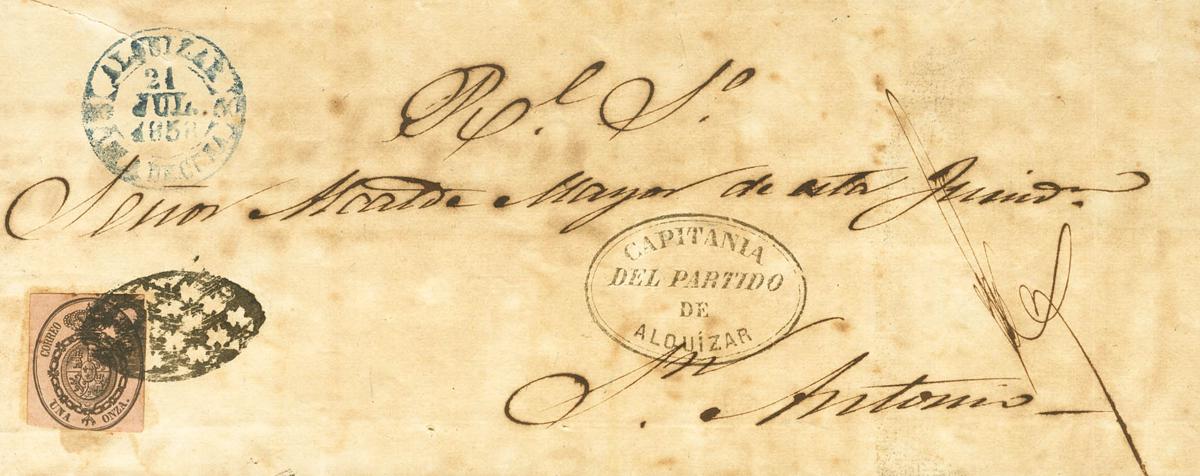 ALQUIZAR
21
JUL.
1858
R.l S.o
Señor Alcalde Mayor de esta Jurisd.n
CAPITANIA
DEL PARTIDO
DE
ALQUÍZAR
S.n Antonio
CORREO
UNA ONZA.